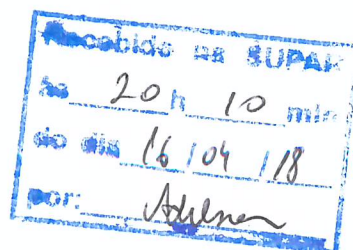 Recebido na SUPAR
às 20 h 10 min
do dia 16 / 04 / 18
por: